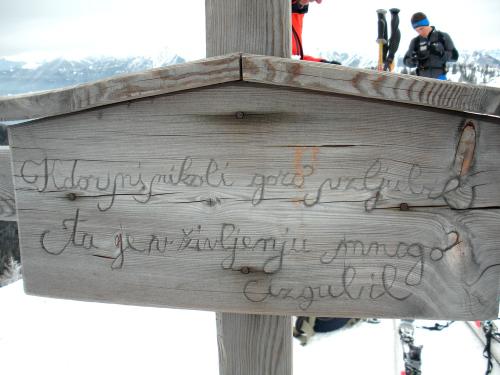 Kdor ni nikoli gore vzljubil
Ta je v življenju mnogo
izgubil